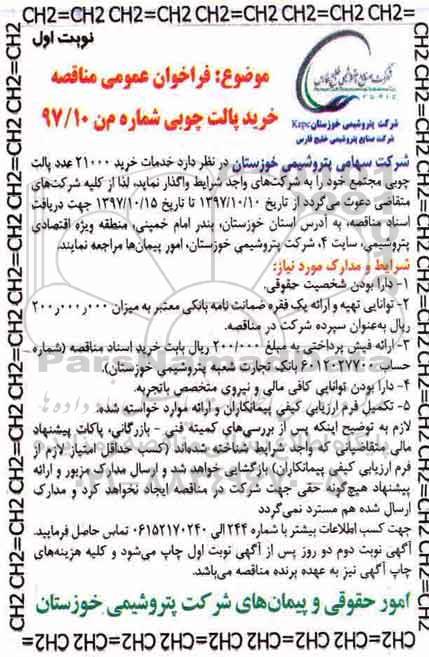 CH2=CH2=CH2=CH2=CH2=CH2=CH2=CH2=CH2=
نوبت اول
موضوع: فراخوان عمومی مناقصه
خرید پالت چوبی شماره م‌ن ۹۷/۱۰
شرکت پتروشیمی خوزستان Kzpc
شرکت صنایع پتروشیمی خلیج فارس
شرکت سهامی پتروشیمی خوزستان در نظر دارد خدمات خرید ۲۱۰۰۰ عدد پالت
چوبی مجتمع خود را به شرکت‌های واجد شرایط واگذار نماید، لذا از کلیه شرکت‌های
متقاضی دعوت می‌گردد از تاریخ ۱۳۹۷/۱۰/۱۰ تا تاریخ ۱۳۹۷/۱۰/۱۵ جهت دریافت
اسناد مناقصه، به آدرس استان خوزستان، بندر امام خمینی، منطقه ویژه اقتصادی
پتروشیمی، سایت ۴، شرکت پتروشیمی خوزستان، امور پیمان‌ها مراجعه نمایند.
شرایط و مدارک مورد نیاز:
۱- دارا بودن شخصیت حقوقی.
۲- توانایی تهیه و ارائه یک فقره ضمانت نامه بانکی معتبر به میزان ۲۰۰٫۰۰۰٫۰۰۰
ریال به‌عنوان سپرده شرکت در مناقصه.
۳- ارائه فیش پرداختی به مبلغ ۲۰۰/۰۰۰ ریال بابت خرید اسناد مناقصه (شماره
حساب ۶۰۱۲۰۲۷۷۰۰ بانک تجارت شعبه پتروشیمی خوزستان).
۴- دارا بودن توانایی کافی مالی و نیروی متخصص باتجربه.
۵- تکمیل فرم ارزیابی کیفی پیمانکاران و ارائه موارد خواسته شده.
لازم به توضیح اینکه پس از بررسی‌های کمیته فنی - بازرگانی، پاکات پیشنهاد
مالی متقاضیانی که واجد شرایط شناخته شده‌اند (کسب حداقل امتیاز لازم از
فرم ارزیابی کیفی پیمانکاران) بازگشایی خواهد شد و ارسال مدارک مزبور و ارائه
پیشنهاد هیچ‌گونه حقی جهت شرکت در مناقصه ایجاد نخواهد کرد و مدارک
ارسال شده هم مسترد نمی‌گردد
جهت کسب اطلاعات بیشتر با شماره ۲۴۴ الی ۰۶۱۵۲۱۷۰۲۴۰ تماس حاصل فرمایید.
آگهی نوبت دوم دو روز پس از آگهی نوبت اول چاپ می‌شود و کلیه هزینه‌های
چاپ آگهی نیز به عهده برنده مناقصه می‌باشد.
امور حقوقی و پیمان‌های شرکت پتروشیمی خوزستان